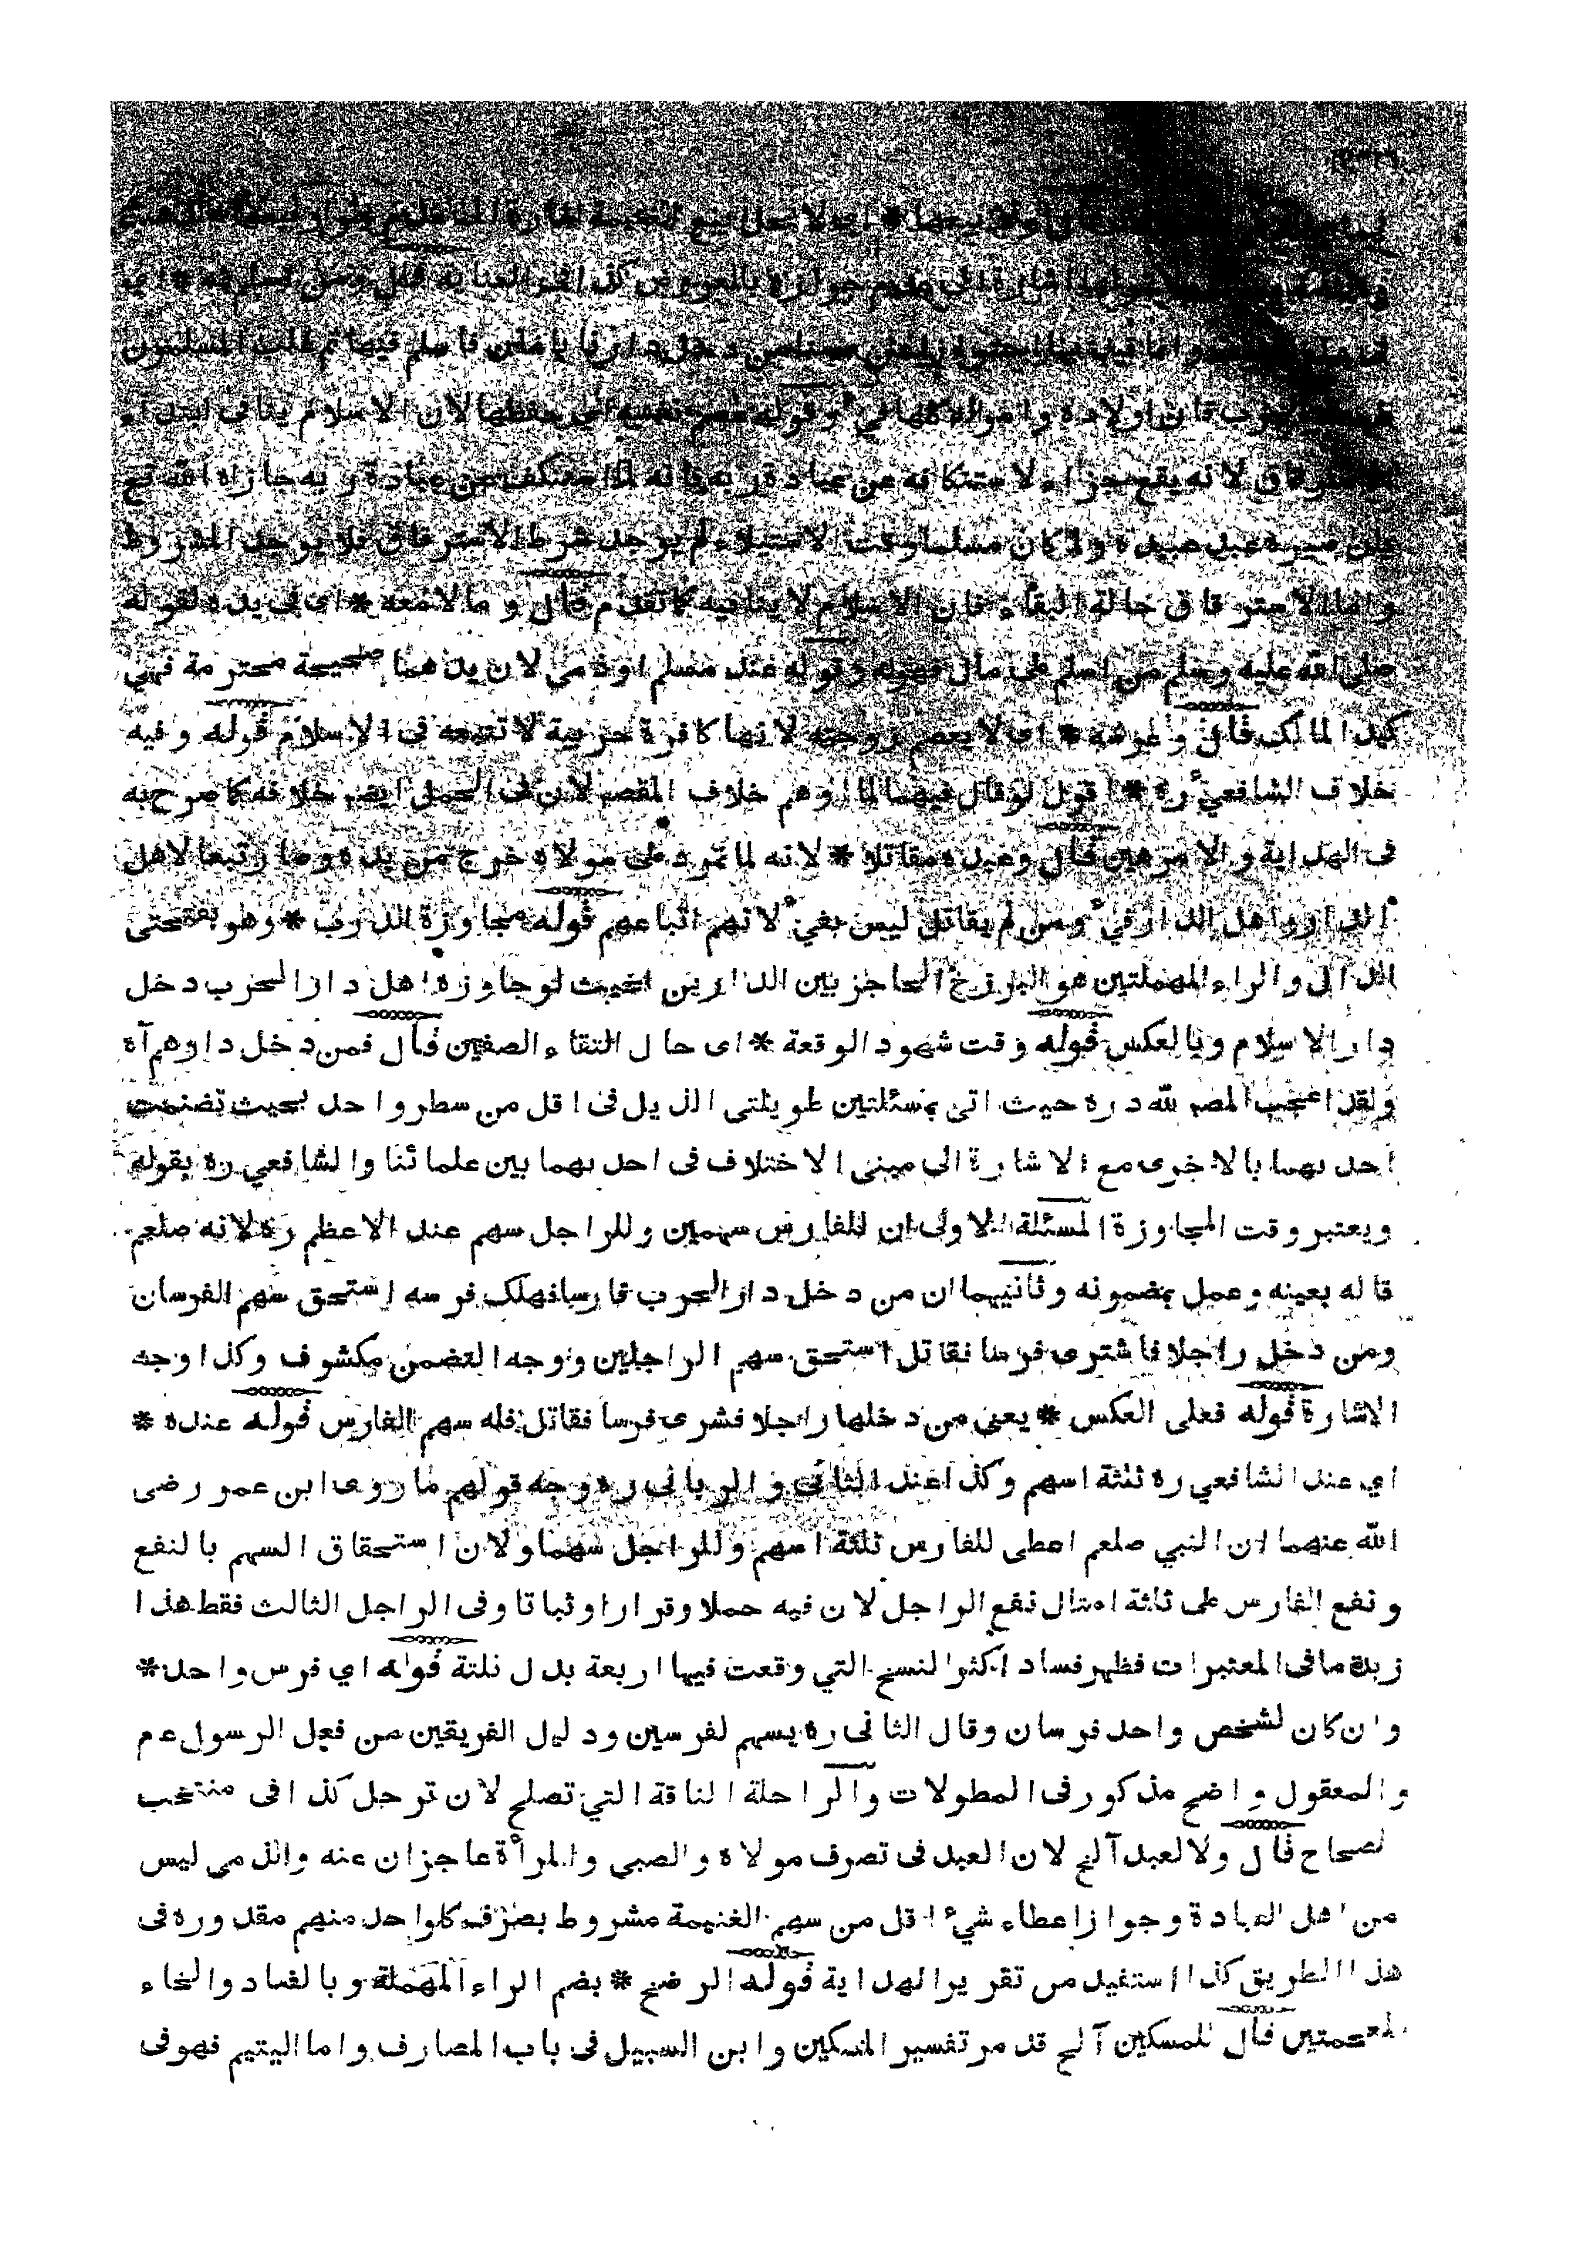 ولا بيعها * اي لا يحل بيع الغنيمة
كذا في العناية قال ومن اسلم ثمه * اي
دخل دارنا بامان فاسلم فيها ثم غلب المسلمون
اولاده وامواله كلها فيء وقوله عصم نفسه اي حفظها لان الاسلام ينافي ابتداء
الاسترقاق لانه يقع جزاء لاستنكافه عن عبادة ربه فانه لما استنكف عن عبادة ربه جازاه الله تع
على صيره عبد عبيده ولما كان مسلما وقت الاستيلاء لم يوجد شرط الاسترقاق فلا يوجد المشروط
واما الاسترقاق حالة البقاء فان الاسلام لا ينافيه كما تقدم قال ومالا معه * اى فى يده لقوله
صلى الله عليه وسلم من اسلم على مال فهوله وقوله عند مسلم اوذمي لان يدهما صحيحة محترمة فهي
كيد المالك قال ولعرسه * اى لا يعصم زوجته لانها كافرة حربية لا تتبعه فى الاسلام قوله وفيه
خلاف الشافعيّ ره * اقول لوقال فيهما لما اوهم خلاف المقصد لان فى الحمل ايضا خلافه كما صرح به
فى الهداية والامر هين قال وعبده مقاتلا * لانه لما تمرد على مولاه خرج من يده وصار تبعا لاهل
الدار واهل الدار فيء ومن لم يقاتل ليس بفيء لانهم اتباعهم قوله مجاوزة الدرب * وهو بفتحتى
الدال والراء المهملتين هو البرزخ الحاجز بين الدارين بحيث لوجاوزه اهل دار الحرب دخل
دار الاسلام وبالعكس قوله وقت شهود الوقعة * اى حال التقاء الصفين قال فمن دخل دارهم آه
ولقد اعجب المصـ لله دره حيث اتى بمسئلتين طويلتى الذيل فى اقل من سطر واحد بحيث تضمنت
احديهما بالاخرى مع الاشارة الى مبنى الاختلاف فى احديهما بين علمائنا والشافعي ره بقوله
ويعتبر وقت المجاوزة المسئلة الاولى ان للفارس سهمين وللراجل سهم عند الاعظم ره لانه صلعم
قاله بعينه وعمل بمضمونه وثانيهما ان من دخل دار الحرب فارسا فهلك فرسه استحق سهم الفرسان
ومن دخل راجلا فاشترى فرسا فقاتل استحق سهم الراجلين ووجه التضمن مكشوف وكذا وجه
الاشارة قوله فعلى العكس * يعنى من دخلها راجلا فشرى فرسا فقاتل فله سهم الفارس قوله عنده *
اي عند الشافعي ره ثلثة اسهم وكذا عند الثانى والربانى ره وجه قولهم ما روى ابن عمر رضى
الله عنهما ان النبي صلعم اعطى للفارس ثلثة اسهم وللراجل سهما ولان استحقاق السهم بالنفع
ونفع الفارس على ثلثة امثال نفع الراجل لان فيه حملا وقرارا وثباتا وفى الراجل الثالث فقط هذا
زبدة ما فى المعتبرات فظهر فساد اكثر النسخ التي وقعت فيها اربعة بدل ثلثة قوله اي فرس واحد *
وان كان لشخص واحد فرسان وقال الثانى ره يسهم لفرسين ودليل الفريقين من فعل الرسول عم
والمعقول واضح مذكور فى المطولات والراحلة الناقة التي تصلح لان ترحل كذا فى منتخب
لصحاح قال ولا لعبد آلخ لان العبد فى تصرف مولاه والصبي والمرأة عاجزان عنه والذمي ليس
من اهل العبادة وجواز اعطاء شيء اقل من سهم الغنيمة مشروط بصرف كلواحد منهم مقدوره فى
هذا الطريق كذا استفيد من تقرير الهداية قوله الرضخ * بضم الراء المهملة وبالضاد والخاء
لمعجمتين قال للمسكين آلخ قد مر تفسير المسكين وابن السبيل فى باب المصارف واما اليتيم فهوفى